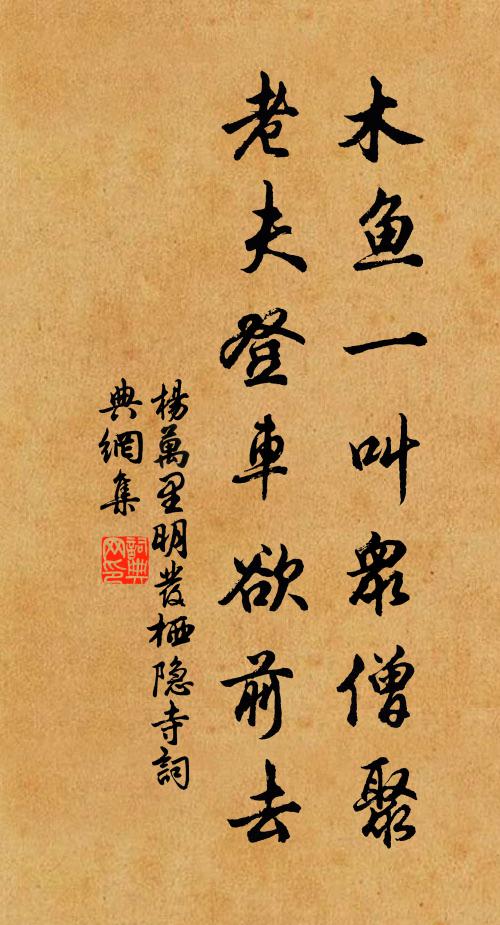 木鱼一叫眾僧聚
老夫登車欲前去
楊萬里明發栖隐寺詞
典網集
詞典网印